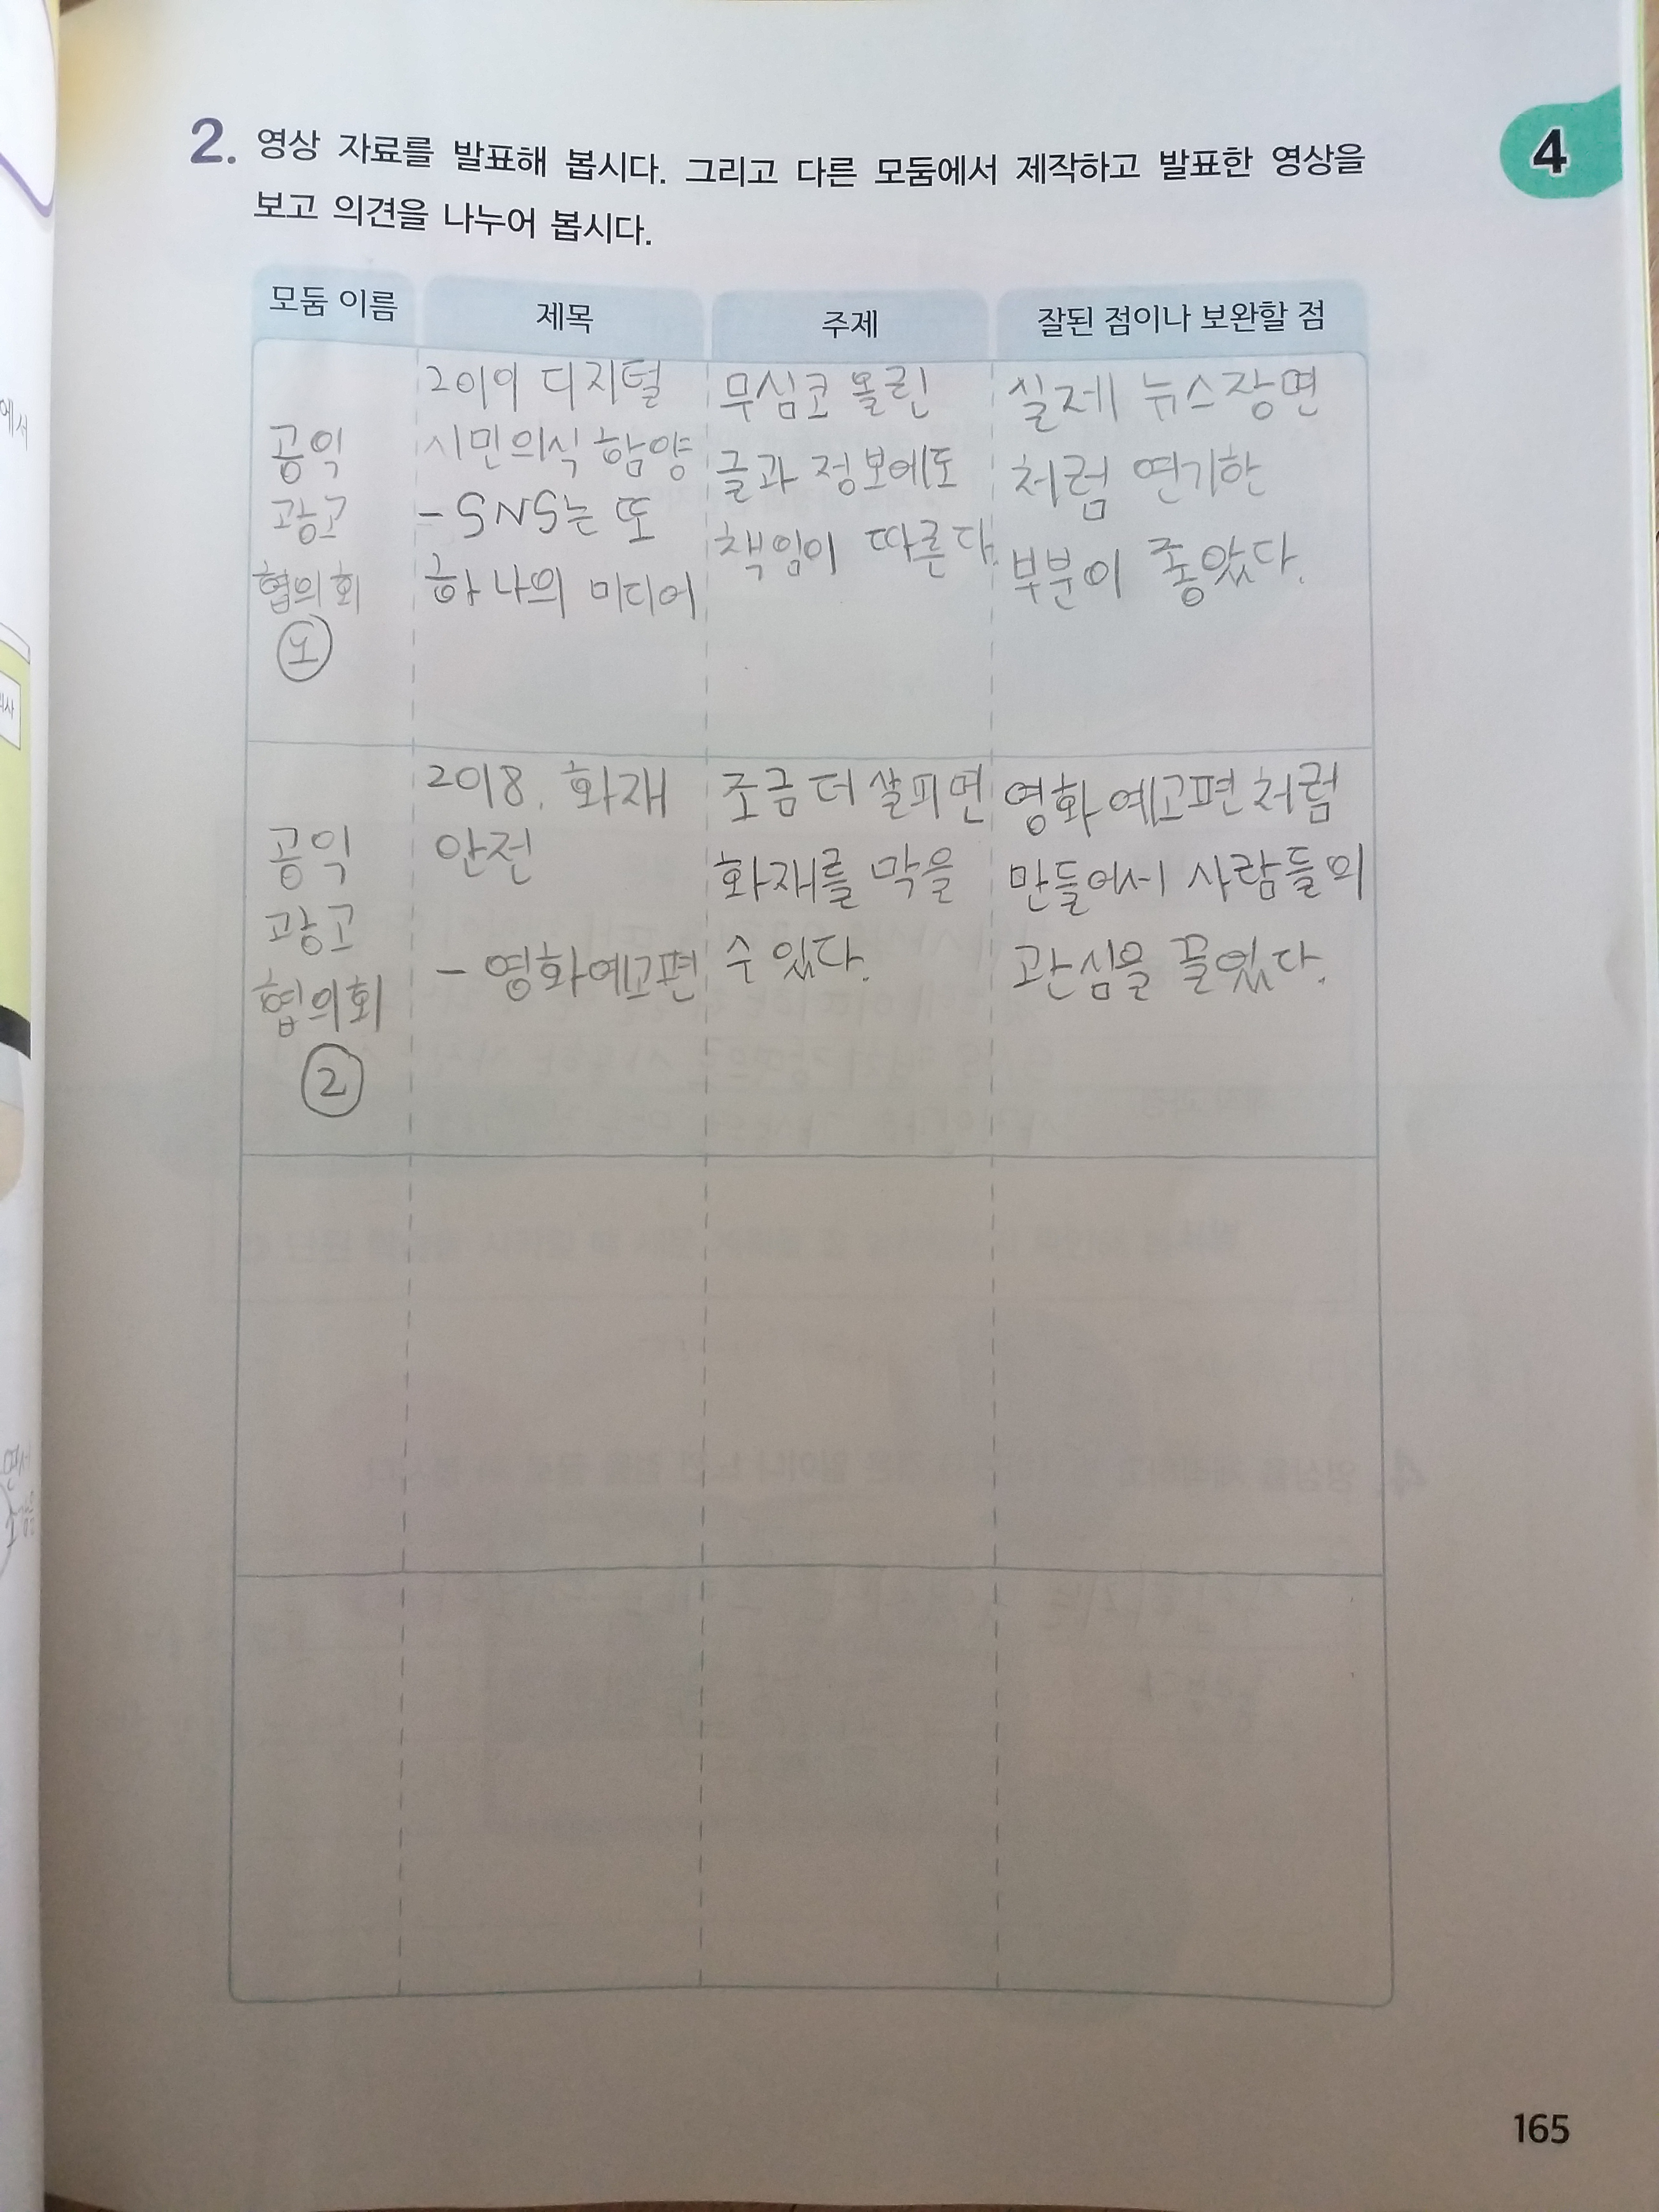 2. 영상 자료를 발표해 봅시다. 그리고 다른 모둠에서 제작하고 발표한 영상을
보고 의견을 나누어 봅시다.
4
모둠 이름
제목
주제
잘된 점이나 보완할 점
공익
광고
협의회
①
2019 디지털
시민의식 함양
- SNS는 또
하나의 미디어
무심코 올린
글과 정보에도
책임이 따른다.
실제 뉴스장면
처럼 연기한
부분이 좋았다.
공익
광고
협의회
②
2018. 화재
안전
- 영화예고편
조금 더 살피면
화재를 막을
수 있다.
영화 예고편처럼
만들어서 사람들의
관심을 끌었다.
에서
165